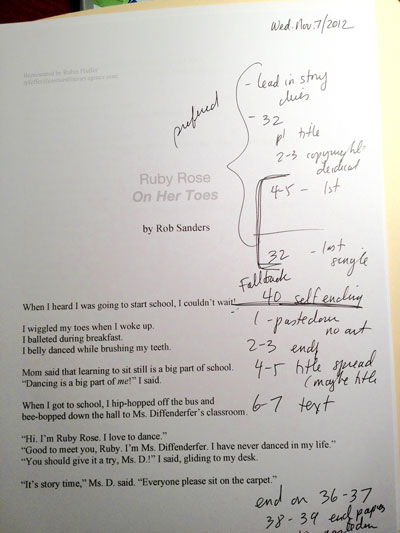 Wed. Nov. 7/2012
Represented by Rubin Pfeffer
preferred
- lead in story
- 32
p1 title
2-3 copyright-
4-5 - 1st
32 - last
single
Ruby Rose
On Her Toes
by Rob Sanders
Fallback
40 self ending
1 - pastedown
no art
2-3 ends
4-5 title spread
(maybe title
6-7 text
When I heard I was going to start school, I couldn't wait!
I wiggled my toes when I woke up.
I balleted during breakfast.
I belly danced while brushing my teeth.
Mom said that learning to sit still is a big part of school.
“Dancing is a big part of me!” I said.
When I got to school, I hip-hopped off the bus and
bee-bopped down the hall to Ms. Diffenderfer's classroom.
“Hi. I'm Ruby Rose. I love to dance.”
“Good to meet you, Ruby. I'm Ms. Diffenderfer. I have never danced in my life.”
“You should give it a try, Ms. D.!” I said, gliding to my desk.
“It's story time,” Ms. D. said. “Everyone please sit on the carpet.”
end on 36-37
38-39 end papers